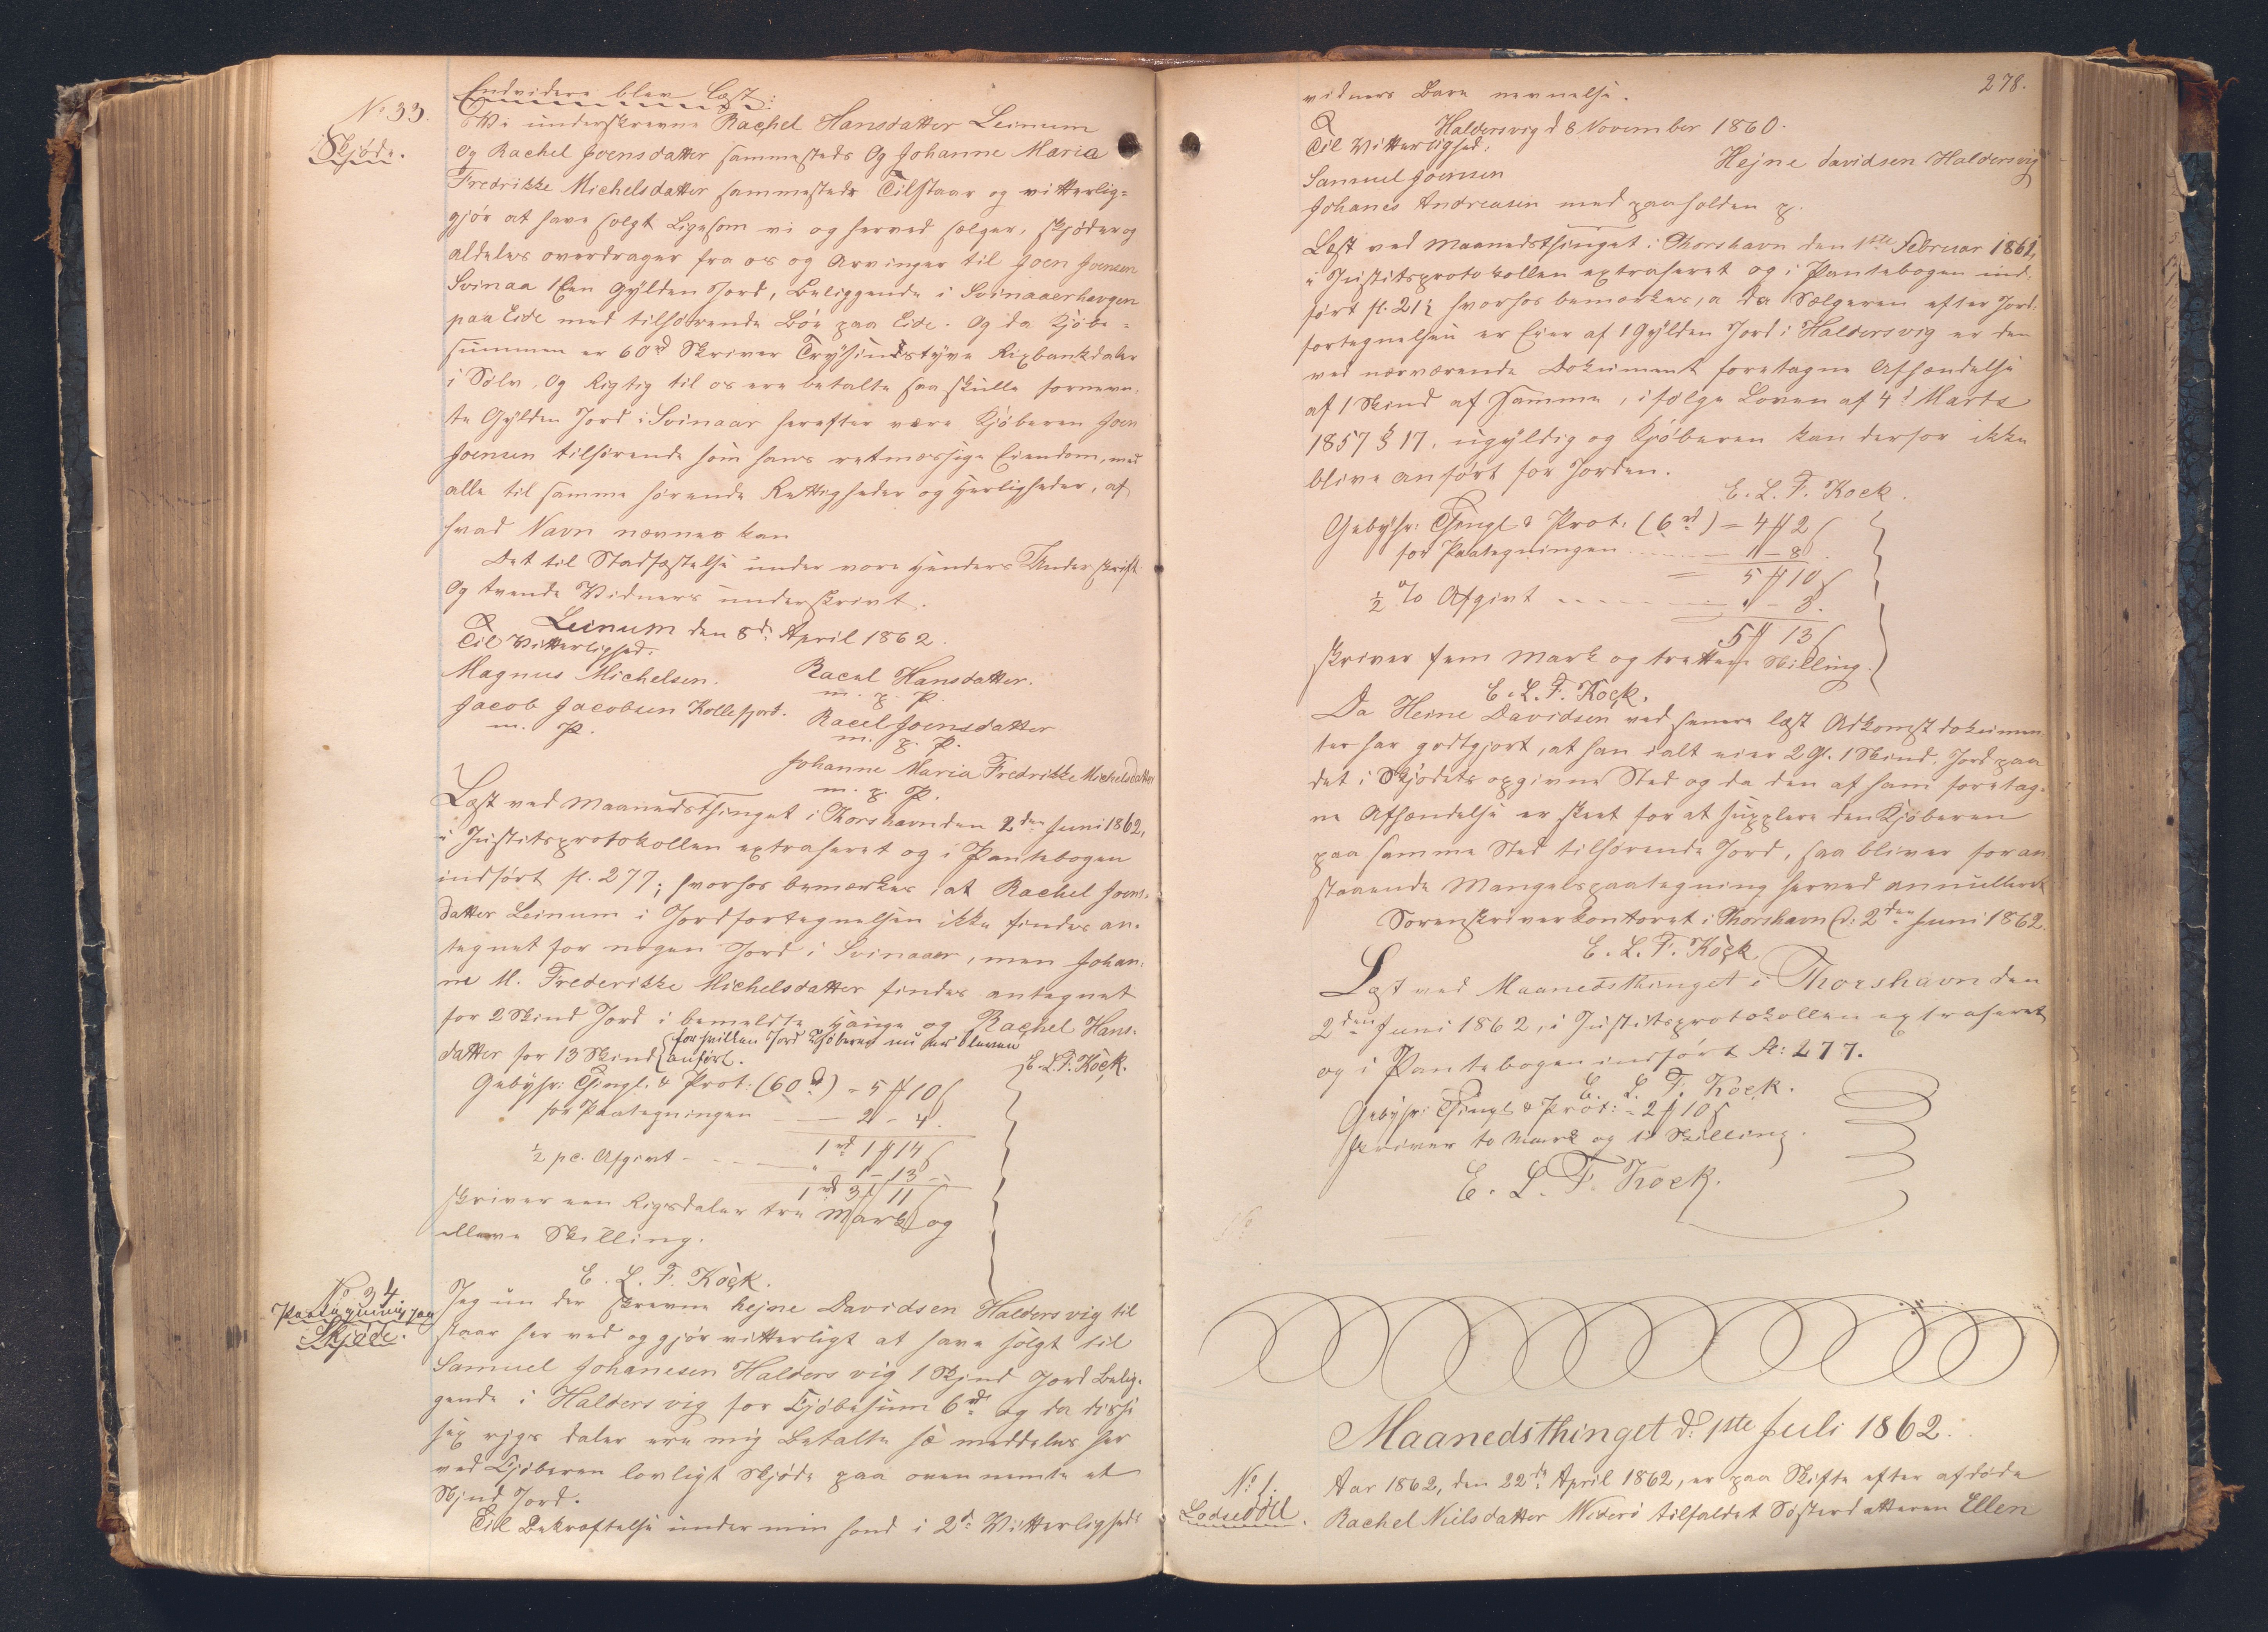 Endvidere blev læst:
No 33.
Skjøde.
Vi underskrevne Rachel Hansdatter Leinum
og Rachel Joensdatter sammesteds Og Johanne Maria
Fredrikke Michelsdatter sammesteds Tilstaar og vitterlig-
gjør at have solgt Ligesom vi og herved sælger, skjøder og
aldeles overdrager fra os og Arvinger til Joen Joensen
Svinaa 1 Een Gylden Jord, beliggende i Svinaaerhavgen
paa Eide med tilhørende Bøe paa Eide. Og da Kjøbe-
summen er 60rd Skriver Trysindstyve Rixbankdaler
i Sølv, Og Rigtig til os ere betalte saa skulle fornævn-
te Gylden Jord i Svinaar herefter være Kjøberen Joen
Joensen tilhørende som hans retmæssige Eiendom, med
alle til samme hørende Rettigheder og Herligheder, af
hvad Navn nævnes kan
Det til Stadfæstelse under vore Hænders Underskrift
Og tvende Vidners underskrivt.
Leinum den 8d April 1862.
Til Vitterlighed.
Magnus Michelsen. Racel Hansdatter.
m. p. P.
Jacob Jacobsen Kollefjord. Racel Joensdatter
m. P. m. p. P.
Johanne Maria Fredrikke Michelsdatter
m. p. P.
Læst ved Maanedsthinget i Thorshavn den 2den Juni 1862,
i Justitsprotokollen extraheret og i Pantebogen
indført fl. 277; hvorhos bemærkes, at Rachel Joens-
datter Leinum i Jordfortegnelsen ikke findes an-
tegnet for nogen Jord i Svinaaer, men Johan-
ne M. Frederikke Michelsdatter findes antegnet
for 2 Skind Jord i bemeldte Hauge og Rachel Hans-
datter for 13 Skind for hvilken Jord Kjøberen nu er bleven
anført. E. L. F. Kock.
Gebyhr: Thingl. & Prot: (60rd) = 5 # 10 ß
for Paategningen 2 - 4.
1rd 1 # 14 ß
½ pc. Afgivt - 1 - 13 -
1rd 3 # 11 ß
skriver een Rigsdaler tre Mark og
elleve Skilling.
E. L. F. Kock.
No 34.
Paategning paa
Skjøde.
Jeg un der skrevne hejne Davidsen Haldersvig til
staar her ved og gjør vitterligt at have solgt til
Samuel Johanesen Halders vig 1 Skjnd Jord Belig-
gende i Halders vig for Kjøbesum 6rd og da disse
sex rigs daler ere mig Betalte så meddeles her
ved Kjøberen lovligt Skjøde paa oven nemte et
Skjnd Jord.
Til Bekræftelse under min hand i 2de Vitterligheds
278.
vidners Bare nevnelse.
Haldersvig d 8 November 1860.
Til Vitterlighed:
Hejne davidsen Haldersvig
Samuel Joensen
Johanes Andreasen med paaholden p.
Læst ved Maanedsthinget i Thorshavn den 1ste Februar 1861,
i Justitsprotokollen extraheret og i Pantebogen ind-
ført fl. 212 hvorhos bemærkes, a da Sælgeren efter Jord-
fortegnelsen er Eier af 1 Gylden Jord i Haldersvig er den
ved nærværende Dokument foretagne Afhændelse
af 1 Skind af samme, ifølge Loven af 4d Marts
1857 § 17, ugyldig og Kjøberen kan derfor ikke
blive anført for Jorden.
E. L. F. Kock.
Gebyhr: Thingl & Prot. (6rd) = 4 # 2 ß
for Paategningen 1 - 8.
= 5 # 10 ß
½ % Afgivt - 3.
5 # 13 ß
skriver fem Mark og tretten Skilling.
E. L. F. Kock.
Da Heine Davidsen ved senere læst Adkomstdokumen-
ter har godtgjort, at han ialt eier 2 Gl. 1 Skind. Jord paa
det i Skjødets opgivne Sted og da den af ham foretag-
ne Afhændelse er skeet for at supplere den Kjøberen
paa samme Sted tilhørende Jord, saa bliver foran
staaende Mangelspaategning herved annulleret
Sorenskriverkontoret i Thorshavn d: 2den Juni 1862.
E. L. F. Kock
Læst ved Maanedsthinget i Thorshavn den
2den Juni 1862, i Justitsprotokollen extraheret
og i Pantebogen indført Fl: 277.
E. L. F. Kock.
Gebyhr: Thingl & Prot: = 2 # 10 ß
skriver to Mark og ti Skilling.
E. L. F. Kock.
Maanedsthinget d: 1ste Juli 1862.
No 1.
Lodseddel.
Aar 1862, den 22de April 1862, er paa Skifte efter afdøde
Rachel Nielsdatter Viderø tilfaldet Søsterdatteren Ellen